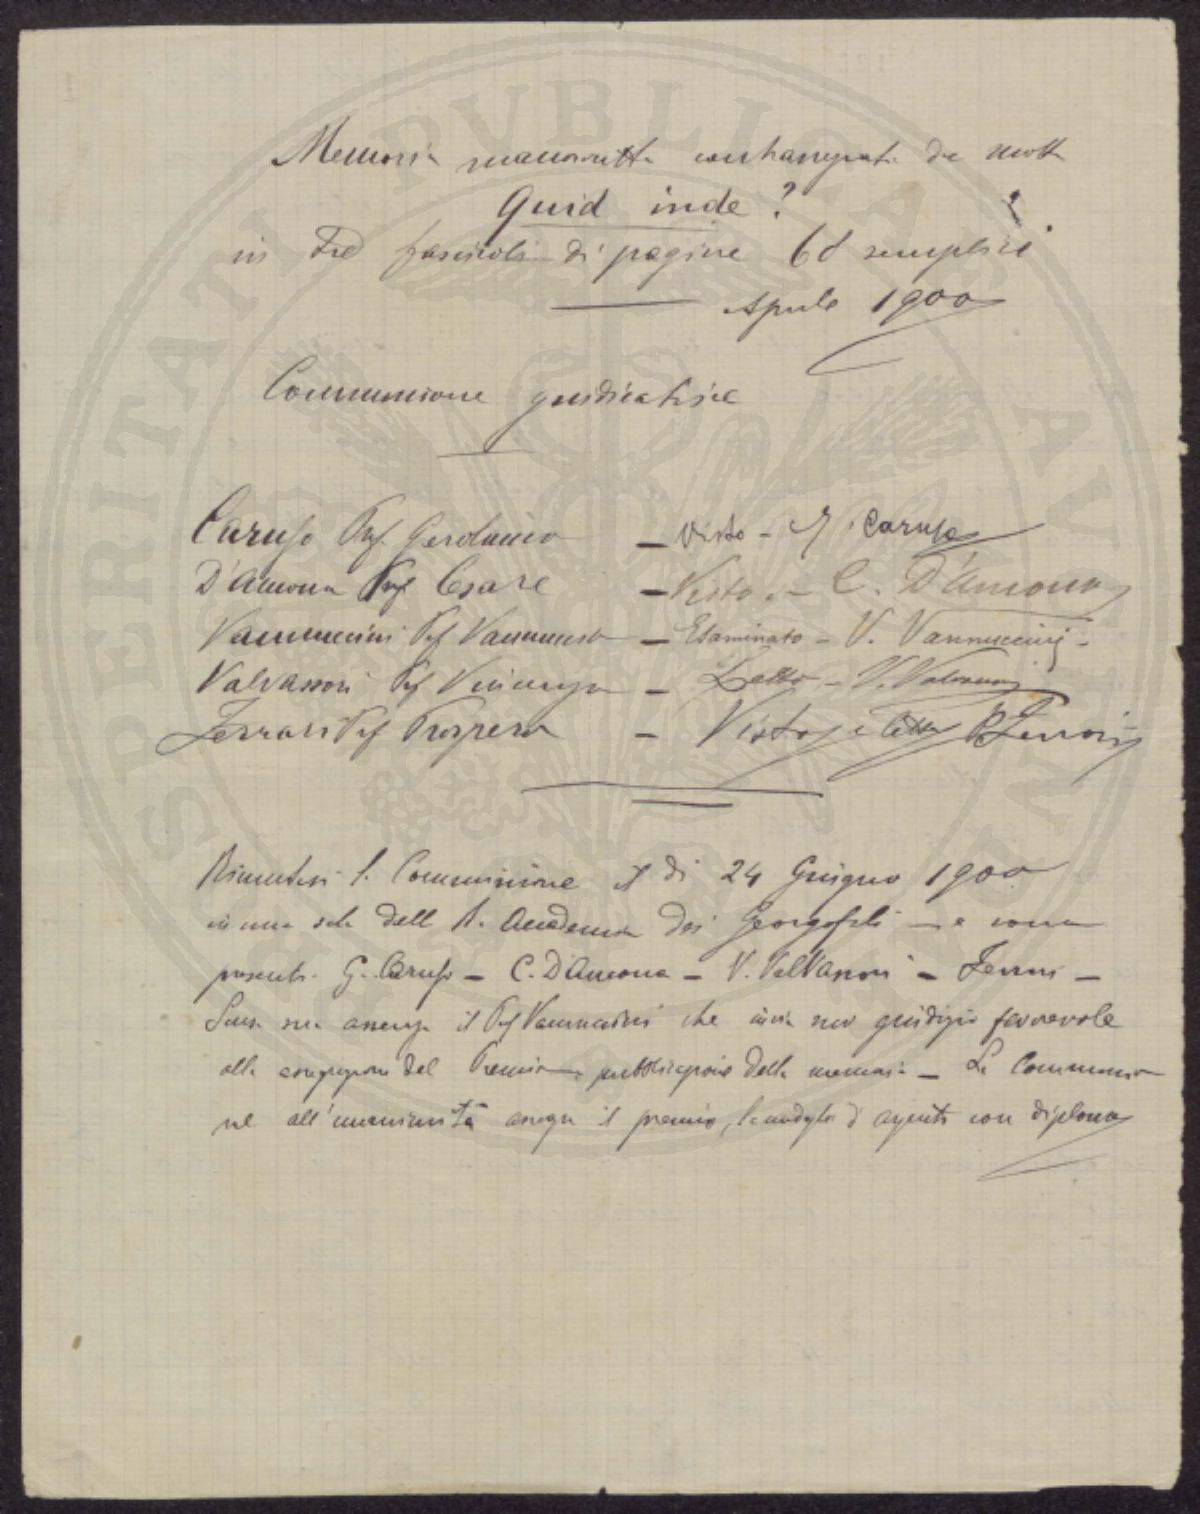 Memoria manoscritta contrasegnata da motto
Quid inde?
in tre fascicoli di pagine 68 semplici
Aprile 1900
Commissione giudicatrice
Caruso Prof. Gerolamo — Visto - G. Caruso
D'Ancona Prof Cesare — Visto - C. D'Ancona
Vannuccini Prof Vannuccio — Esaminato - V. Vannuccini -
Valvassori Prof Vincenzo — Letto - V. Valvassori
Ferrari Prof Prospero — Visto e letto P. Ferrari
Riunitasi la Commissione il dì 24 Giugno 1900
in una sala della R. Accademia dei Georgofili — e sono
presenti G. Caruso — C. D'Ancona — V. Valvassori — Ferrari —
Scusa sua assenza il Prof Vannuccini che invia suo giudizio favorevole
alla assegnazione del Premio e pubblicazione della memoria — La Commissio
ne all'unanimità assegna il premio, la medaglia d'argento con diploma
PROSPERITATI PVBLICAE AVGENDAE